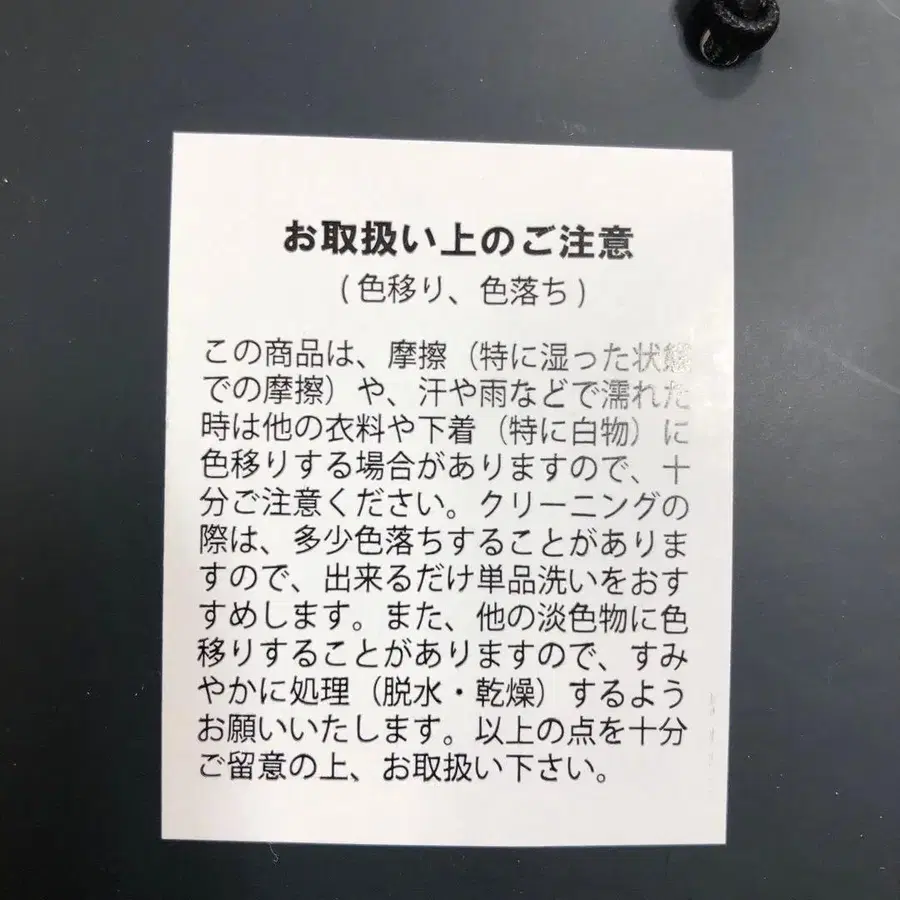 お取扱い上のご注意
(色移り、色落ち)
この商品は、摩擦（特に湿った状態
での摩擦）や、汗や雨などで濡れた
時は他の衣料や下着（特に白物）に
色移りする場合がありますので、十
分ご注意ください。クリーニングの
際は、多少色落ちすることがありま
すので、出来るだけ単品洗いをおす
すめします。また、他の淡色物に色
移りすることがありますので、すみ
やかに処理（脱水・乾燥）するよう
お願いいたします。以上の点を十分
ご留意の上、お取扱い下さい。